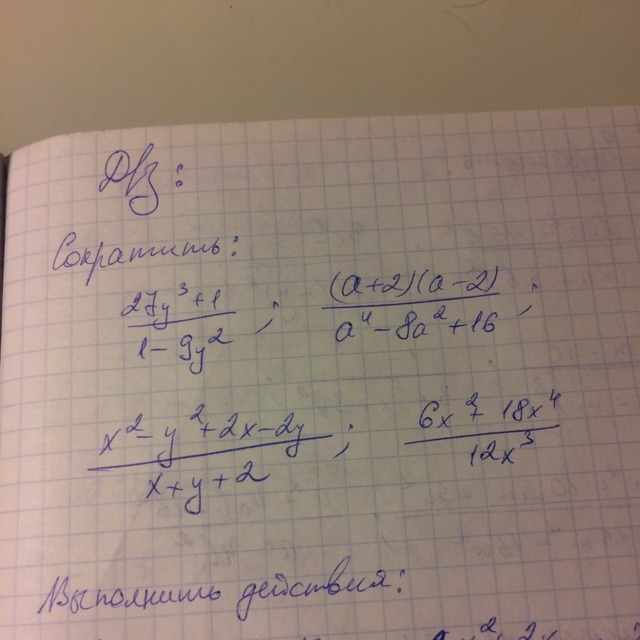 Д/з:
Сократить:
(27y³+1)/(1-9y²); ((a+2)(a-2))/(a⁴-8a²+16);
(x²-y²+2x-2y)/(x+y+2); (6x²-18x⁴)/(12x³)
Выполнить действия: